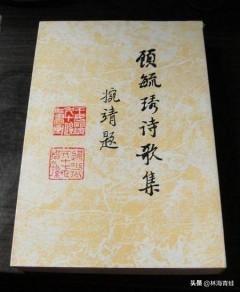 顾毓琇诗歌集
婉靖题
头条 @林海青蛙